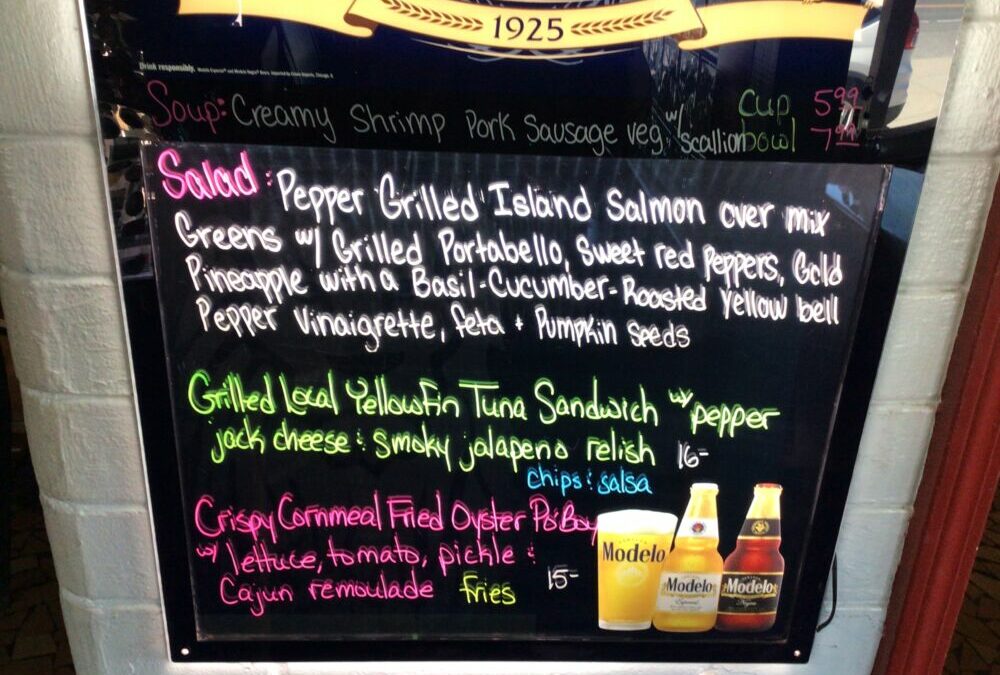 1925
Drink responsibly.
Soup: Creamy Shrimp Pork Sausage veg. w/ scallion
Cup 5.99
bowl 7.99
Salad: Pepper Grilled Island Salmon over mix
Greens w/ Grilled Portabello, Sweet red Peppers, Gold
Pineapple with a Basil-Cucumber-Roasted Yellow bell
Pepper Vinaigrette, feta + Pumpkin Seeds
Grilled Local Yellowfin Tuna Sandwich w/ pepper
jack cheese & smoky jalapeno relish 16-
chips & salsa
Crispy Cornmeal Fried Oyster Po'Boy
w/ lettuce, tomato, pickle &
Cajun remoulade Fries 15-
Modelo
Modelo
Especial
Modelo
Negra